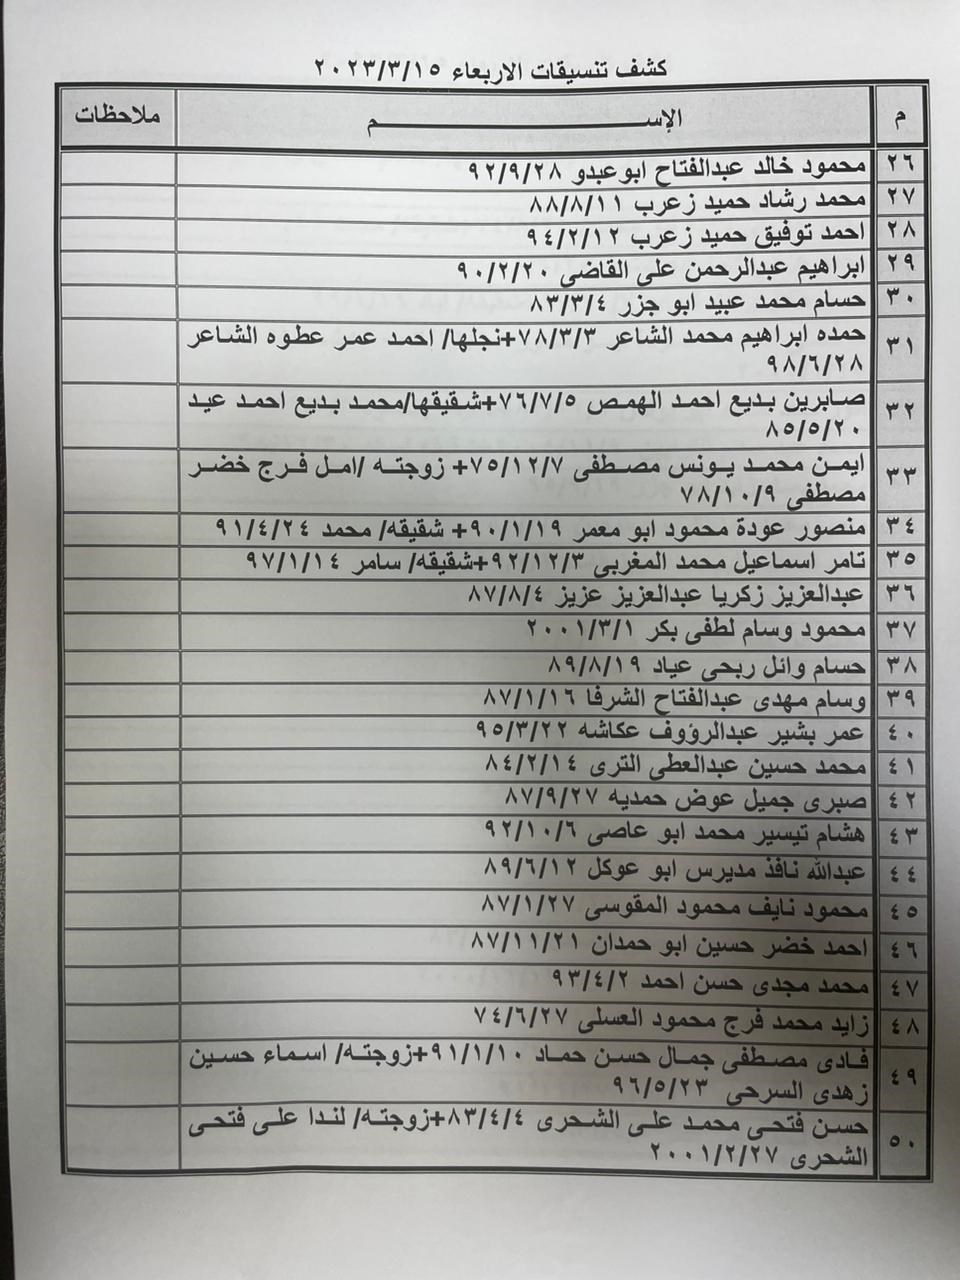 كشف تنسيقات الاربعاء ٢٠٢٣/٣/١٥
م الإســـــــــــــم ملاحظات
٢٦ محمود خالد عبدالفتاح ابوعبدو ٩٢/٩/٢٨
٢٧ محمد رشاد حميد زعرب ٨٨/٨/١١
٢٨ احمد توفيق حميد زعرب ٩٤/٢/١٢
٢٩ ابراهيم عبدالرحمن على القاضى ٩٠/٢/٢٠
٣٠ حسام محمد عبيد ابو جزر ٨٣/٣/٤
٣١ حمده ابراهيم محمد الشاعر ٧٨/٣/٣+نجلها/ احمد عمر عطوه الشاعر
٩٨/٦/٢٨
٣٢ صابرين بديع احمد الهمص ٧٦/٧/٥+شقيقها/محمد بديع احمد عيد
٨٥/٥/٢٠
٣٣ ايمن محمد يونس مصطفى ٧٥/١٢/٧+ زوجته /امل فرج خضر
مصطفى ٧٨/١٠/٩
٣٤ منصور عودة محمود ابو معمر ٩٠/١/١٩+ شقيقه/ محمد ٩١/٤/٢٤
٣٥ تامر اسماعيل محمد المغربى ٩٢/١٢/٣+شقيقه/ سامر ٩٧/١/١٤
٣٦ عبدالعزيز زكريا عبدالعزيز عزيز ٨٧/٨/٤
٣٧ محمود وسام لطفى بكر ٢٠٠١/٣/١
٣٨ حسام وائل ربحى عياد ٨٩/٨/١٩
٣٩ وسام مهدى عبدالفتاح الشرفا ٨٧/١/١٦
٤٠ عمر بشير عبدالرؤوف عكاشه ٩٥/٣/٢٢
٤١ محمد حسين عبدالعطى الترى ٨٤/٢/١٤
٤٢ صبرى جميل عوض حمديه ٨٧/٩/٢٧
٤٣ هشام تيسير محمد ابو عاصى ٩٢/١٠/٦
٤٤ عبدالله نافذ مديرس ابو عوكل ٨٩/٦/١٢
٤٥ محمود نايف محمود المقوسى ٨٧/١/٢٧
٤٦ احمد خضر حسين ابو حمدان ٨٧/١١/٢١
٤٧ محمد مجدى حسن احمد ٩٣/٤/٢
٤٨ زايد محمد فرج محمود العسلى ٧٤/٦/٢٧
٤٩ فادى مصطفى جمال حسن حماد ٩١/١/١٠+زوجته/ اسماء حسين
زهدى السرحى ٩٦/٥/٢٣
٥٠ حسن فتحى محمد على الشحرى ٨٣/٤/٤+زوجته/ لندا على فتحى
الشحرى ٢٠٠١/٢/٢٧